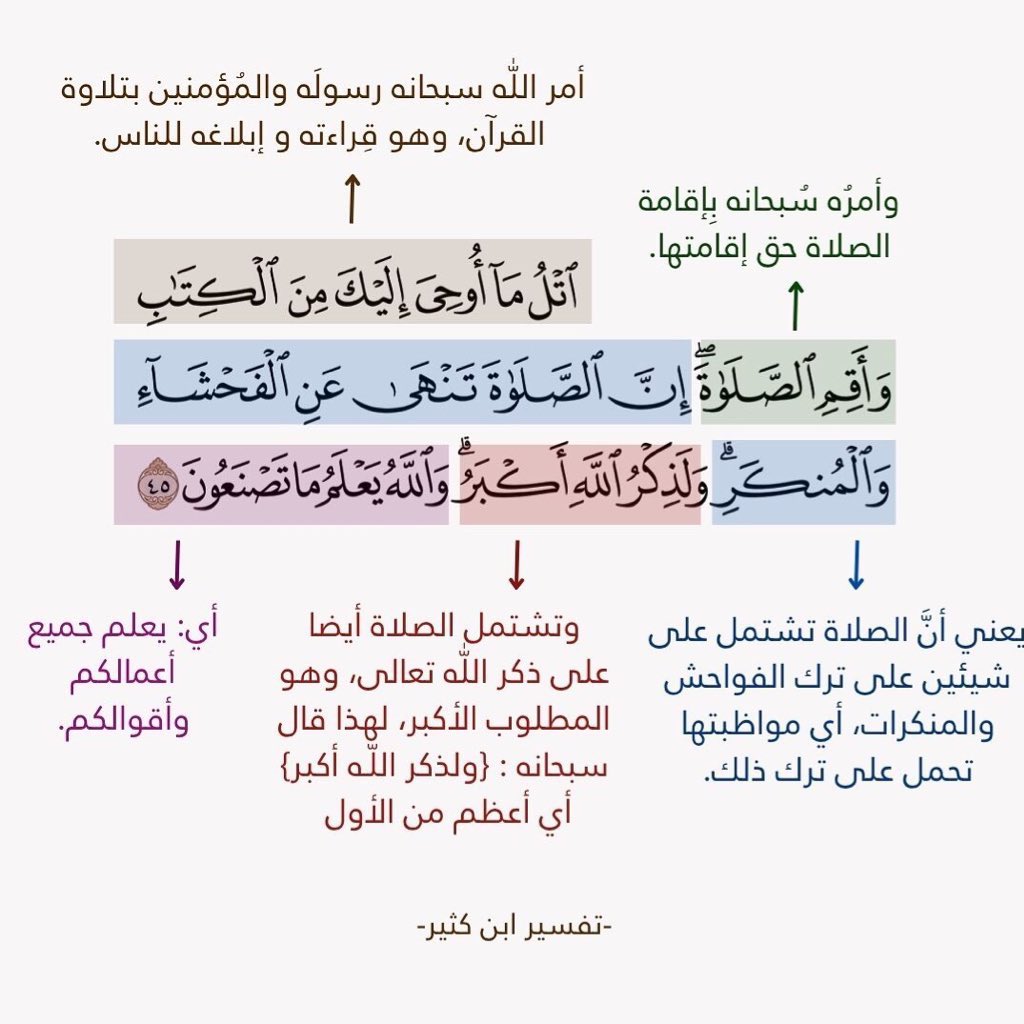 أمر اللّٰه سبحانه رسولَه والمُؤمنين بتلاوة
القرآن، وهو قِراءته و إبلاغه للناس.
وأمرُه سُبحانه بِإقامة
الصلاة حق إقامتها.
ٱتۡلُ مَآ أُوحِيَ إِلَيۡكَ مِنَ ٱلۡكِتَٰبِ
وَأَقِمِ ٱلصَّلَوٰةَۖ إِنَّ ٱلصَّلَوٰةَ تَنۡهَىٰ عَنِ ٱلۡفَحۡشَآءِ
وَٱلۡمُنكَرِۗ وَلَذِكۡرُ ٱللَّهِ أَكۡبَرُۗ وَٱللَّهُ يَعۡلَمُ مَا تَصۡنَعُونَ ٤٥
يعني أنَّ الصلاة تشتمل على
شيئين على ترك الفواحش
والمنكرات، أي مواظبتها
تحمل على ترك ذلك.
وتشتمل الصلاة أيضا
على ذكر اللّٰه تعالى، وهو
المطلوب الأكبر، لهذا قال
سبحانه : {ولذكر اللّه أكبر}
أي أعظم من الأول
أي: يعلم جميع
أعمالكم
وأقوالكم.
-تفسير ابن كثير-